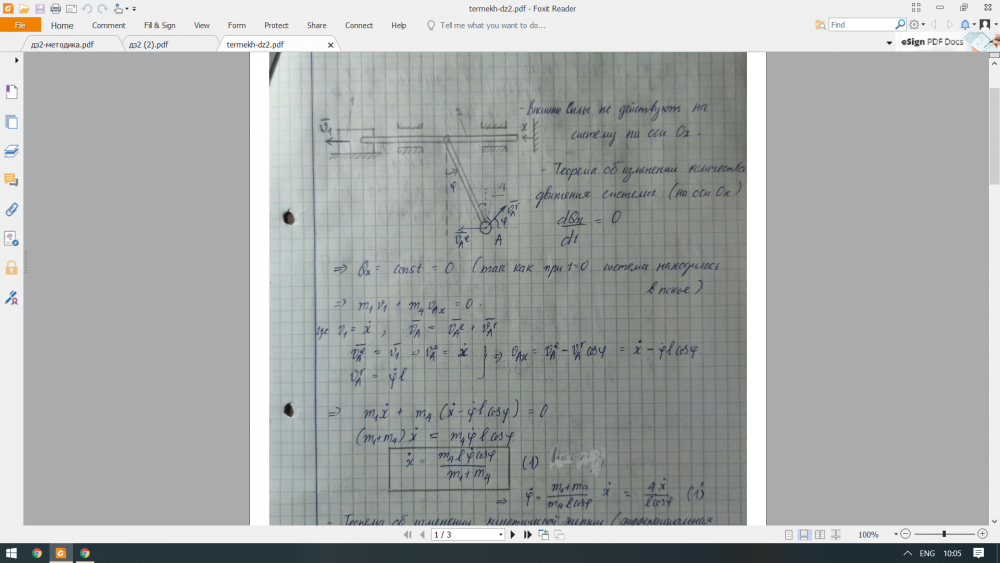 termekh-dz2.pdf - Foxit Reader
File Home Comment Fill & Sign View Form Protect Share Connect Help Tell me what you want to do... Find
дз-методика.pdf дз2 (2).pdf termekh-dz2.pdf eSign PDF Docs
- Внешние силы не действуют на
систему по оси Ox.
v̄₁
x
φ
- Теорема об изменении количества
движения системы (на ось Ox)
dQx/dt = 0
v̄ₐʳ
φ
v̄ₐᵉ A
⇒ Qx = const = 0 (так как при t=0 система находилась
в покое)
⇒ m₁v₁ + m₄vₐₓ = 0.
где v₁ = ẋ, v̄ₐ = v̄ₐᵉ + v̄ₐʳ
v̄ₐᵉ = v̄₁ ⇒ vₐᵉ = ẋ
vₐʳ = φ̇l
⇒ vₐₓ = vₐᵉ - vₐʳ cosφ = ẋ - φ̇l cosφ
⇒ m₁ẋ + m₄(ẋ - φ̇l cosφ) = 0
(m₁+m₄)ẋ = m₄φ̇l cosφ
ẋ = m₄lφ̇cosφ/(m₁+m₄) (1)
⇒ φ̇ = (m₁+m₄)/(m₄l cosφ) ẋ = 4ẋ/(l cosφ) (1')
- Теорема об изменении кинетической энергии (дифференциальная
1 / 3
100%
ENG 10:05